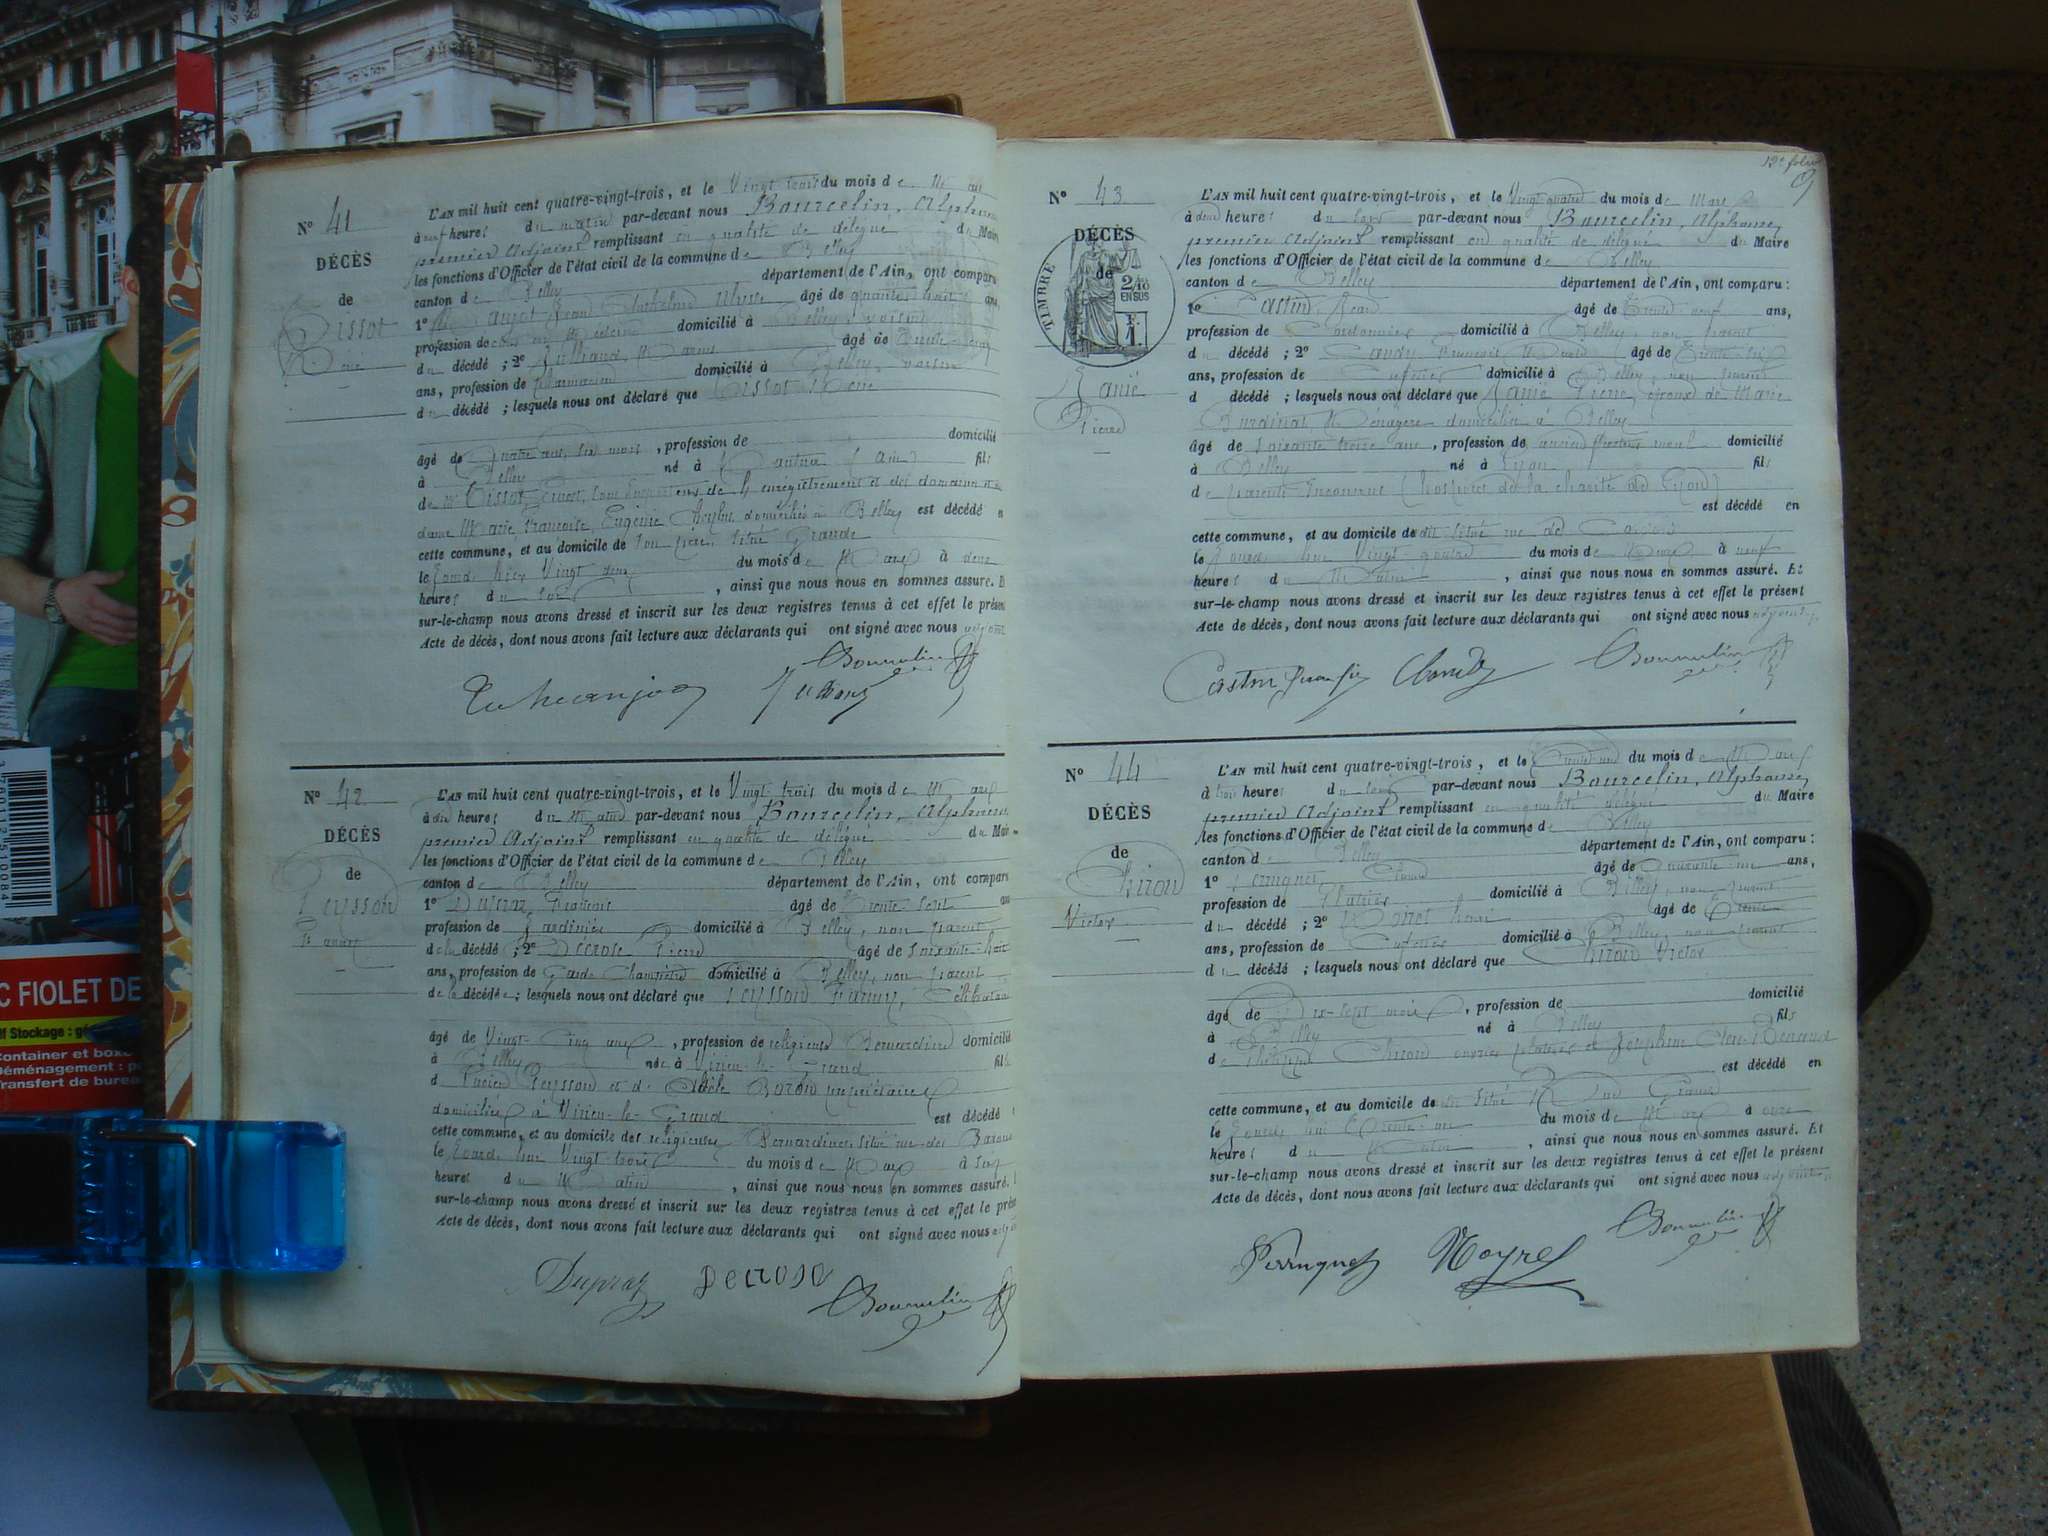 N° 41
DÉCÈS
de
Tissot
René
L'AN mil huit cent quatre-vingt-trois, et le Vingt trois du mois de Mars
à neuf heures du matin par-devant nous Bourcelin, Alphonse
premier Adjoint remplissant en qualité de délégué du Maire
les fonctions d'Officier de l'état civil de la commune de Belley
canton de Belley département de l'Ain, ont comparu
1° Jean Anthelme Ulysse âgé de quarante huit ans,
profession de médecin domicilié à Belley, voisin
du décédé ; 2° Julliand, Marius âgé de Trente cinq
ans, profession de pharmacien domicilié à Belley, voisin
du décédé ; lesquels nous ont déclaré que Tissot René
âgé de quatre ans, six mois, profession de domicilié
à Belley né à Nantua (Ain) fils
de Mr Tissot Ernest, Sous Inspecteur de l'enregistrement et des domaines et
dame Marie Françoise, Eugénie domiciliés à Belley est décédé en
cette commune, et au domicile de son père, situé Grande
le jour d'hier Vingt deux du mois de Mars à deux
heures du soir, ainsi que nous nous en sommes assuré. Et
sur-le-champ nous avons dressé et inscrit sur les deux registres tenus à cet effet le présent
Acte de décès, dont nous avons fait lecture aux déclarants qui ont signé avec nous adjoint
N° 42
DÉCÈS
de
Peysson
Fanny
L'AN mil huit cent quatre-vingt-trois, et le Vingt trois du mois de Mars
à dix heures du Matin par-devant nous Bourcelin, Alphonse
premier Adjoint remplissant en qualité de délégué du Maire
les fonctions d'Officier de l'état civil de la commune de Belley
canton de Belley département de l'Ain, ont comparu
1° Dupraz, François âgé de Trente sept ans
profession de Jardinier domicilié à Belley, non parent
de la décédée ; 2° Décrose Pierre âgé de soixante-huit
ans, profession de Garde Champêtre domicilié à Belley, non parent
de la décédée ; lesquels nous ont déclaré que Peysson Fanny, Célibataire
âgé de Vingt-Cinq ans, profession de religieuse Bernardine domicilié
à Belley née à Virieu-le-Grand fille
de Lucien Peysson et de Borron propriétaires
domiciliés à Virieu-le-Grand est décédé
cette commune, et au domicile des religieuses Bernardines, situé rue des Barons
le jour d'hui Vingt trois du mois de Mars à six
heures du Matin, ainsi que nous nous en sommes assuré.
sur-le-champ nous avons dressé et inscrit sur les deux registres tenus à cet effet le présent
Acte de décès, dont nous avons fait lecture aux déclarants qui ont signé avec nous adjoint
Dupraz Decrose
12e folio
N° 43
DÉCÈS
de
TIMBRE
2/10 EN SUS
F. 1.
Janié
Pierre
L'AN mil huit cent quatre-vingt-trois, et le Vingt quatre du mois de Mars
à deux heures du soir par-devant nous Bourcelin, Alphonse
premier Adjoint remplissant en qualité de délégué du Maire
les fonctions d'Officier de l'état civil de la commune de Belley
canton de Belley département de l'Ain, ont comparu :
1° Castin, Jean âgé de Trente neuf ans,
profession de Cordonnier domicilié à Belley, non parent
du décédé ; 2° François âgé de Trente six
ans, profession de domicilié à Belley, non parent
d décédé ; lesquels nous ont déclaré que Janié Pierre, époux de Marie
Burdinat, Ménagère domiciliée à Belley
âgé de soixante treize ans, profession de ancien domicilié
à Belley né à Lyon fils
de parents inconnus (hospice de la charité de Lyon)
est décédé en
cette commune, et au domicile de situé rue de
le jour d'hui Vingt-quatre du mois de Mars à neuf
heures du Matin, ainsi que nous nous en sommes assuré. Et
sur-le-champ nous avons dressé et inscrit sur les deux registres tenus à cet effet le présent
Acte de décès, dont nous avons fait lecture aux déclarants qui ont signé avec nous adjoint.
Castin
N° 44
DÉCÈS
de
Chiron
Victor
L'AN mil huit cent quatre-vingt-trois, et le Trente un du mois de Mars
à trois heures du soir par-devant nous Bourcelin, Alphonse
premier Adjoint remplissant en qualité délégué du Maire
les fonctions d'Officier de l'état civil de la commune de Belley
canton de Belley département de l'Ain, ont comparu :
1° Perruquet âgé de quarante un ans,
profession de Plâtrier domicilié à Belley, non parent
du décédé ; 2° Noyret Henri âgé de Trente
ans, profession de domicilié à Belley, non parent
du décédé ; lesquels nous ont déclaré que Chiron Victor
âgé de Dix-sept mois, profession de domicilié
à Belley né à Belley fils
de Chiron ouvrier plâtrier et Joséphine
est décédé en
cette commune, et au domicile de situé
le jour d'hui Trente-un du mois de Mars à onze
heures du Matin, ainsi que nous nous en sommes assuré. Et
sur-le-champ nous avons dressé et inscrit sur les deux registres tenus à cet effet le présent
Acte de décès, dont nous avons fait lecture aux déclarants qui ont signé avec nous adjoint
Perruquet Noyret
C FIOLET DE
lf Stockage : gé
Container et box
Déménagement : p
Transfert de burea
3 760112 510084